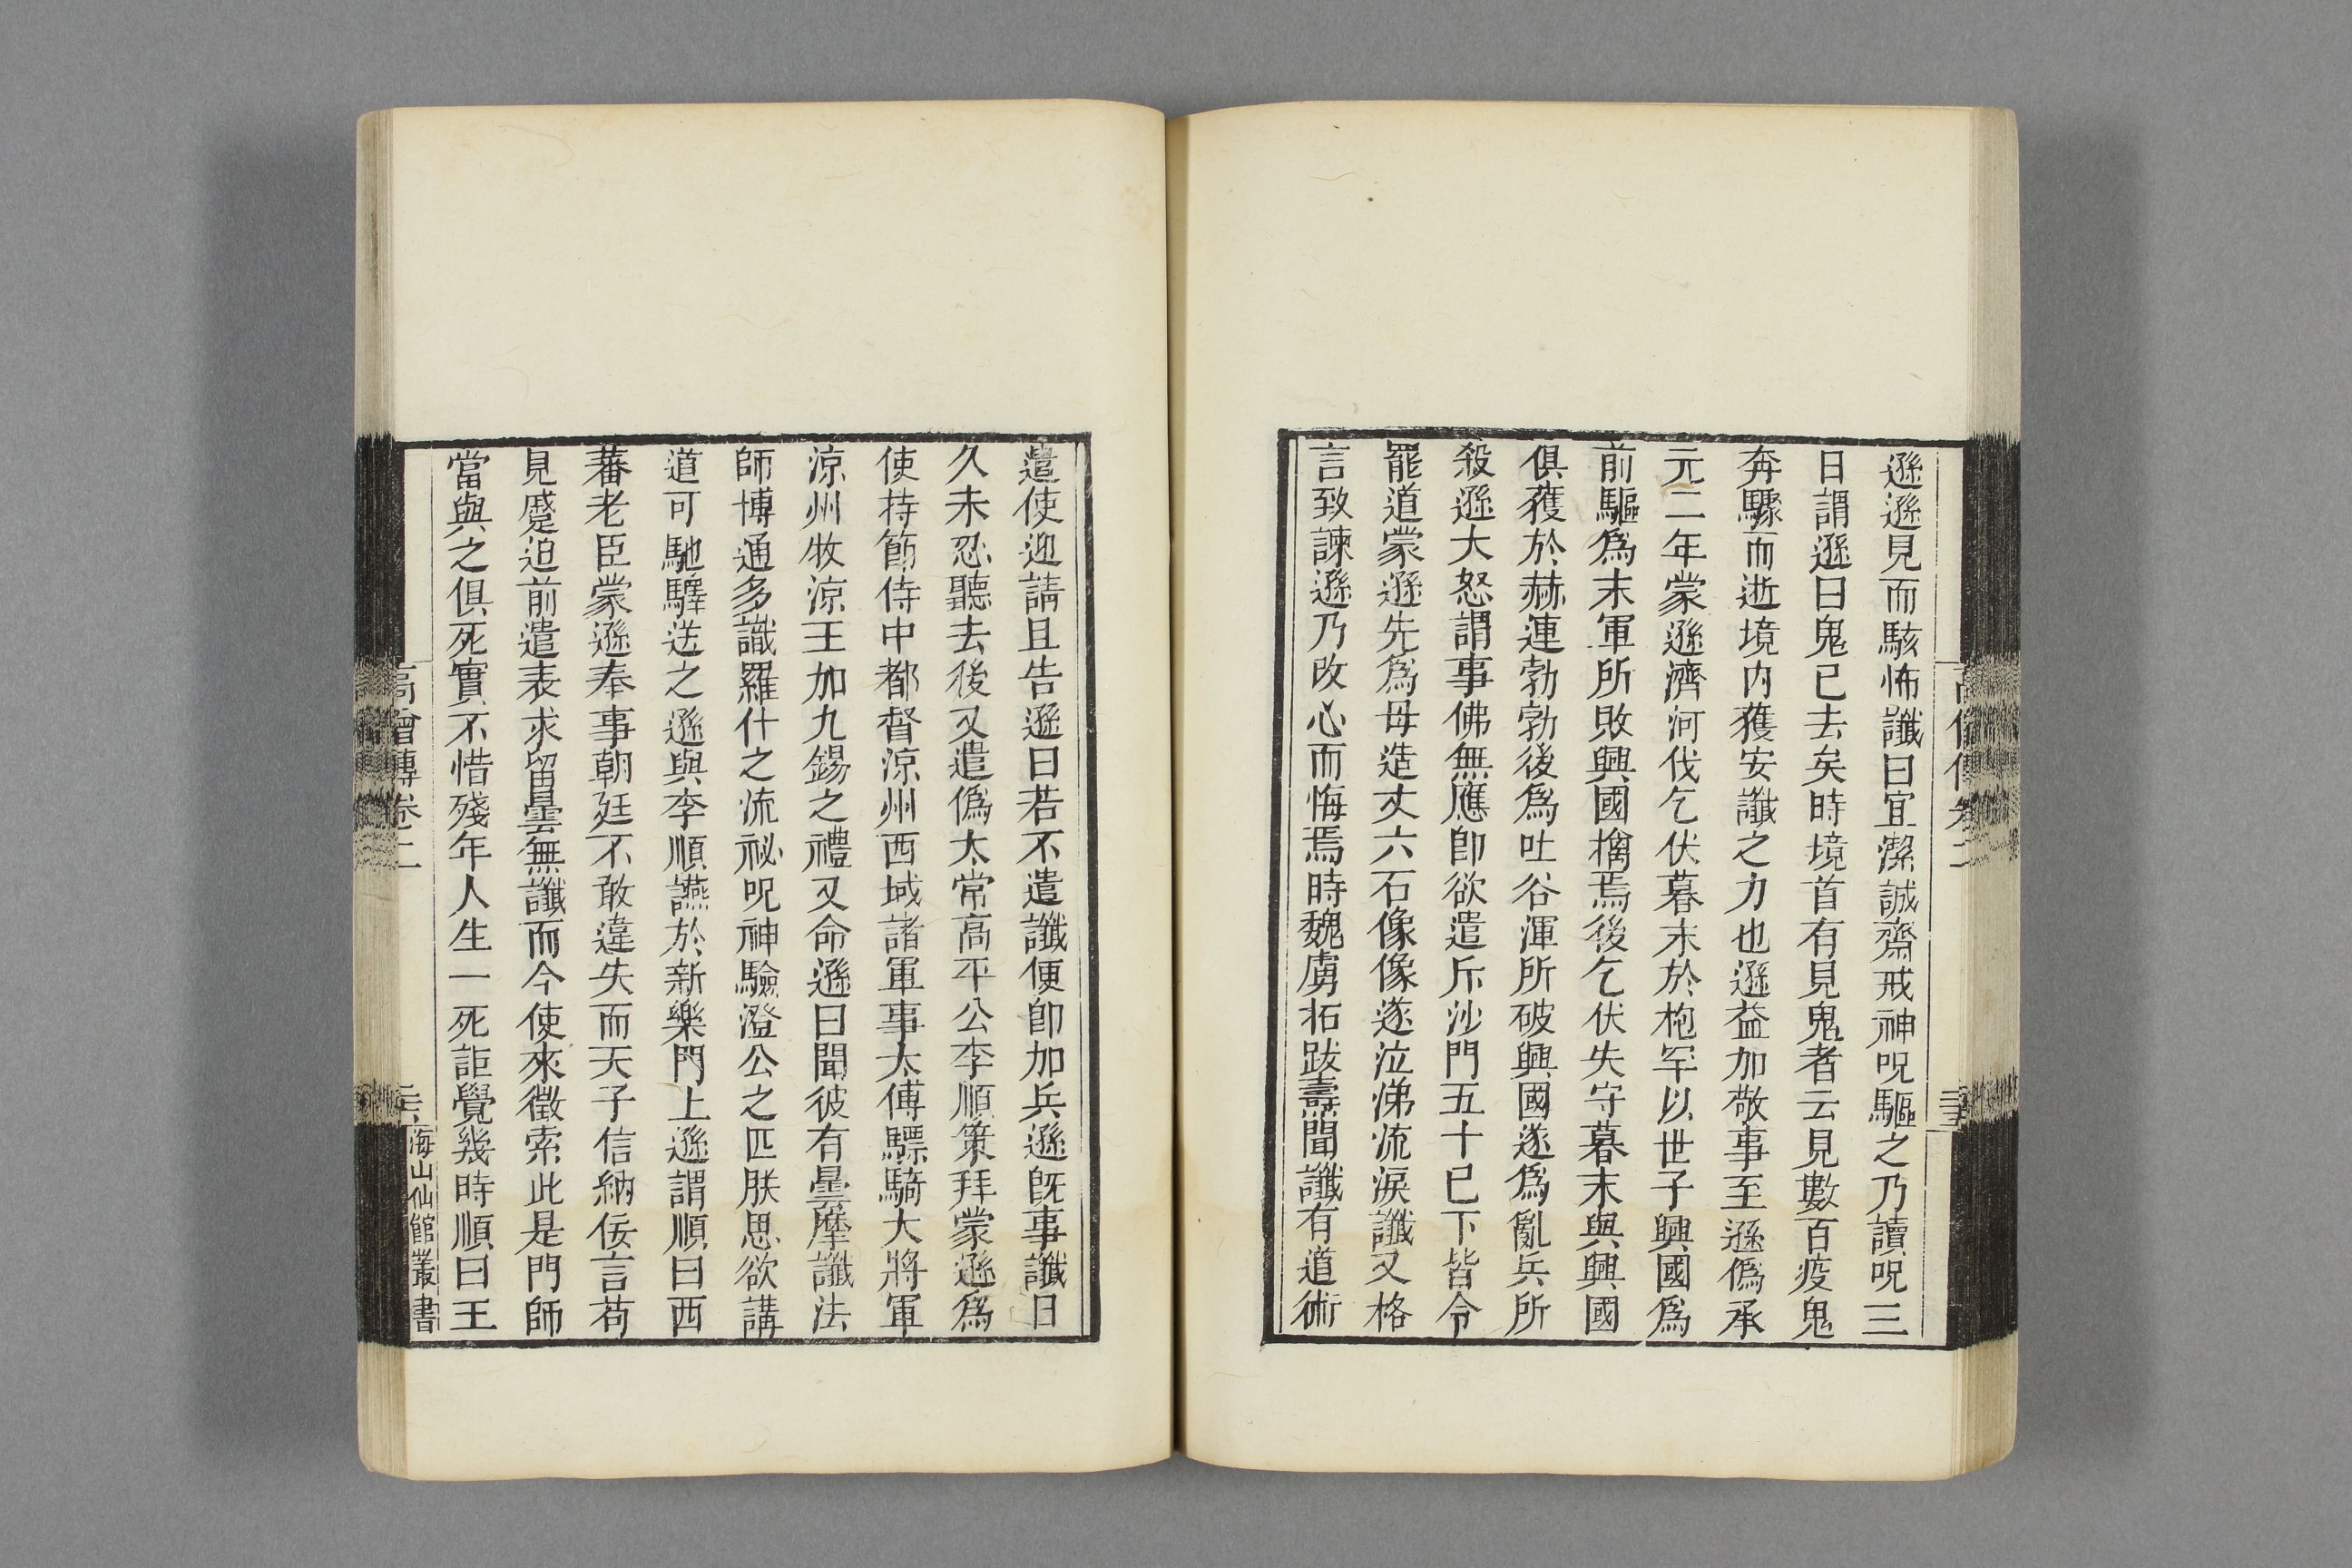 遜遜見而駭怖讖曰宜潔誠齋戒神呪驅之乃讀呪三
日謂遜曰鬼已去矣時境首有見鬼者云見數百疫鬼
奔驟而逝境内獲安讖之力也遜益加敬事至遜僞承
元二年蒙遜濟河伐乞伏暮末於枹罕以世子興國爲
前驅爲末軍所敗興國擒焉後乞伏失守暮末與興國
俱獲於赫連勃勃後爲吐谷渾所破興國遂爲亂兵所
殺遜大怒謂事佛無應卽欲遣斥沙門五十已下皆令
罷道蒙遜先爲母造丈六石像像遂泣涕流淚讖又格
言致諫遜乃改心而悔焉時魏虜拓跋壽聞讖有道術
遣使迎請且告遜曰若不遣讖便卽加兵遜旣事讖日
久未忍聽去後又遣僞太常高平公李順策拜蒙遜爲
使持節侍中都督涼州西域諸軍事太傅驃騎大將軍
涼州牧涼王加九錫之禮又命遜曰聞彼有曇摩讖法
師博通多識羅什之流祕呪神驗澄公之匹朕思欲講
道可馳驛送之遜與李順讌於新樂門上遜謂順曰西
蕃老臣蒙遜奉事朝廷不敢違失而天子信納佞言苟
見蹙迫前遣表求留曇無讖而今使來徵索此是門師
當與之俱死實不惜殘年人生一死詎覺幾時順曰王
高僧傳卷二
海山仙館叢書